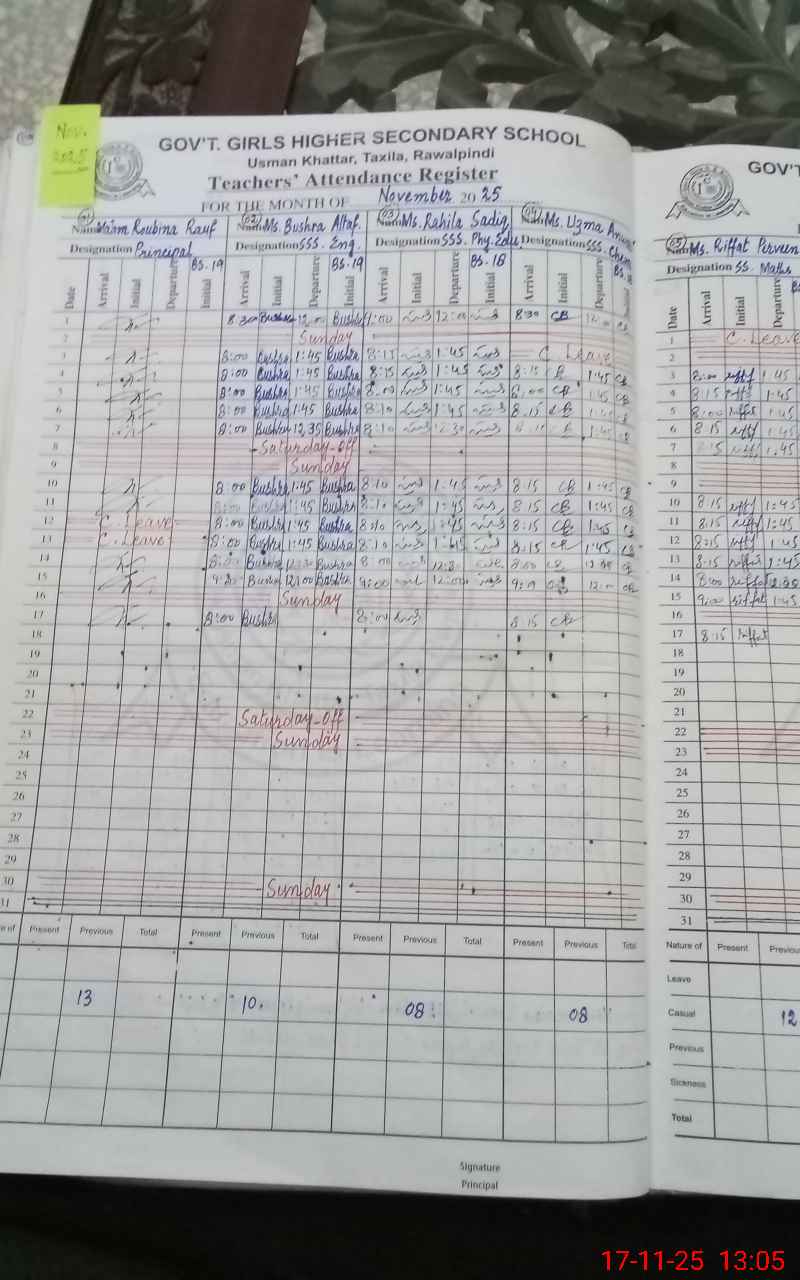 Nov.
2025
GOV'T. GIRLS HIGHER SECONDARY SCHOOL
Usman Khattar, Taxila, Rawalpindi
Teachers' Attendance Register
FOR THE MONTH OF November 2025
01 Name Ma'am Roubina Rauf 02 Name Ms. Bushra Altaf. 03 Name Ms. Rahila Sadiq 04 Name Ms. Uzma
Designation Principal Designation SSS. Eng. Designation SSS. Phy. Edu. Designation SSS. Chem
BS.19 BS.19 BS.18
Date Arrival Initial Departure Initial Arrival Initial Departure Initial Arrival Initial Departure Initial Arrival Initial Departure
1 8:30 Bushra 12:00 Bushra 9:00 12:00 8:30 CB 12:00 CB
2 Sunday
3 8:00 Bushra 1:45 Bushra 8:15 1:45 C. Leave
4 8:00 Bushra 1:45 Bushra 8:15 1:45 8:15 CB 1:45 CB
5 8:00 Bushra 1:45 Bushra 8:00 1:45 8:00 CB 1:45 CB
6 8:00 Bushra 1:45 Bushra 8:10 1:45 8:15 CB 1:45 CB
7 8:00 Bushra 12:35 Bushra 8:10 12:30
8 Saturday-off
9 Sunday
10 8:00 Bushra 1:45 Bushra 8:10 1:45 8:15 CB 1:45 CB
11 8:00 Bushra 1:45 Bushra 8:10 1:45 8:15 CB 1:45 CB
12 C. Leave 8:00 Bushra 1:45 Bushra 8:10 1:45 8:15 CB 1:45 CB
13 C. Leave 8:00 Bushra 1:45 Bushra 8:10 1:45 8:15 CB 1:45 CB
14 8:00 Bushra Bushra 8:00 8:00 CB CB
15 Bushra 12:00 Bushra 9:00 12:00 12:00 CB
16 Sunday
17 8:00 Bushra 8:00 8:15 CB
18
19
20
21
22 Saturday-off
23 Sunday
24
25
26
27
28
29
30 Sunday
31
Present Previous Total Present Previous Total Present Previous Total Present Previous
13 10. 08 08
Signature
Principal
GOV'T
05 Name Ms. Riffat Perveen
Designation SS. Maths
Date Arrival Initial Departure
1 C. Leave
2
3 8:00 riffat 1:45
4 8:15 riffat 1:45
5 8:00 riffat 1:45
6 8:15 riffat 1:45
7 riffat 1:45
8
9
10 8:15 riffat 1:45
11 8:15 riffat 1:45
12 8:15 riffat 1:45
13 8:15 riffat 1:45
14 8:00 riffat
15 9:00 riffat 1:45
16
17 8:15 riffat
18
19
20
21
22
23
24
25
26
27
28
29
30
31
Nature of Present Previous
Leave
Casual 12
Previous
Sickness
Total
17-11-25 13:05